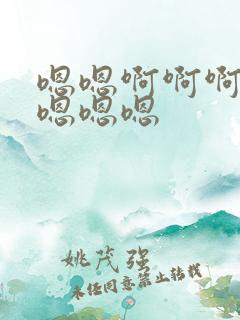 嗯嗯啊啊啊
嗯嗯嗯
姚茂强
未经同意禁止转载